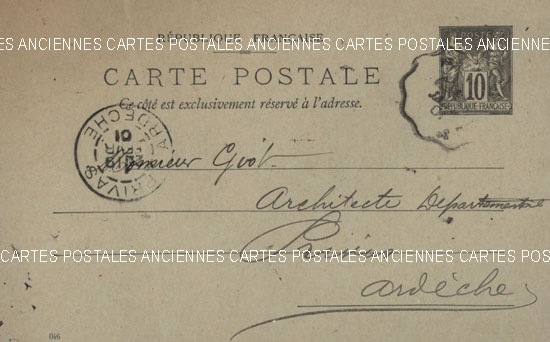 RÉPUBLIQUE FRANÇAISE
ES ANCIENNES CARTES POSTALES ANCIENNES CARTES POSTALES ANCIENNES CARTES POSTALES
CARTE POSTALE
Ce côté est exclusivement réservé à l'adresse.
10
RÉPUBLIQUE FRANÇAISE
PRIVAS
ARDECHE
01
Monsieur Giot
Architecte Departemental
Privas
CARTES POSTALES ANCIENNES CARTES POSTALES ANCIENNES CARTES POSTALES ANCIENNES
ardèche
046